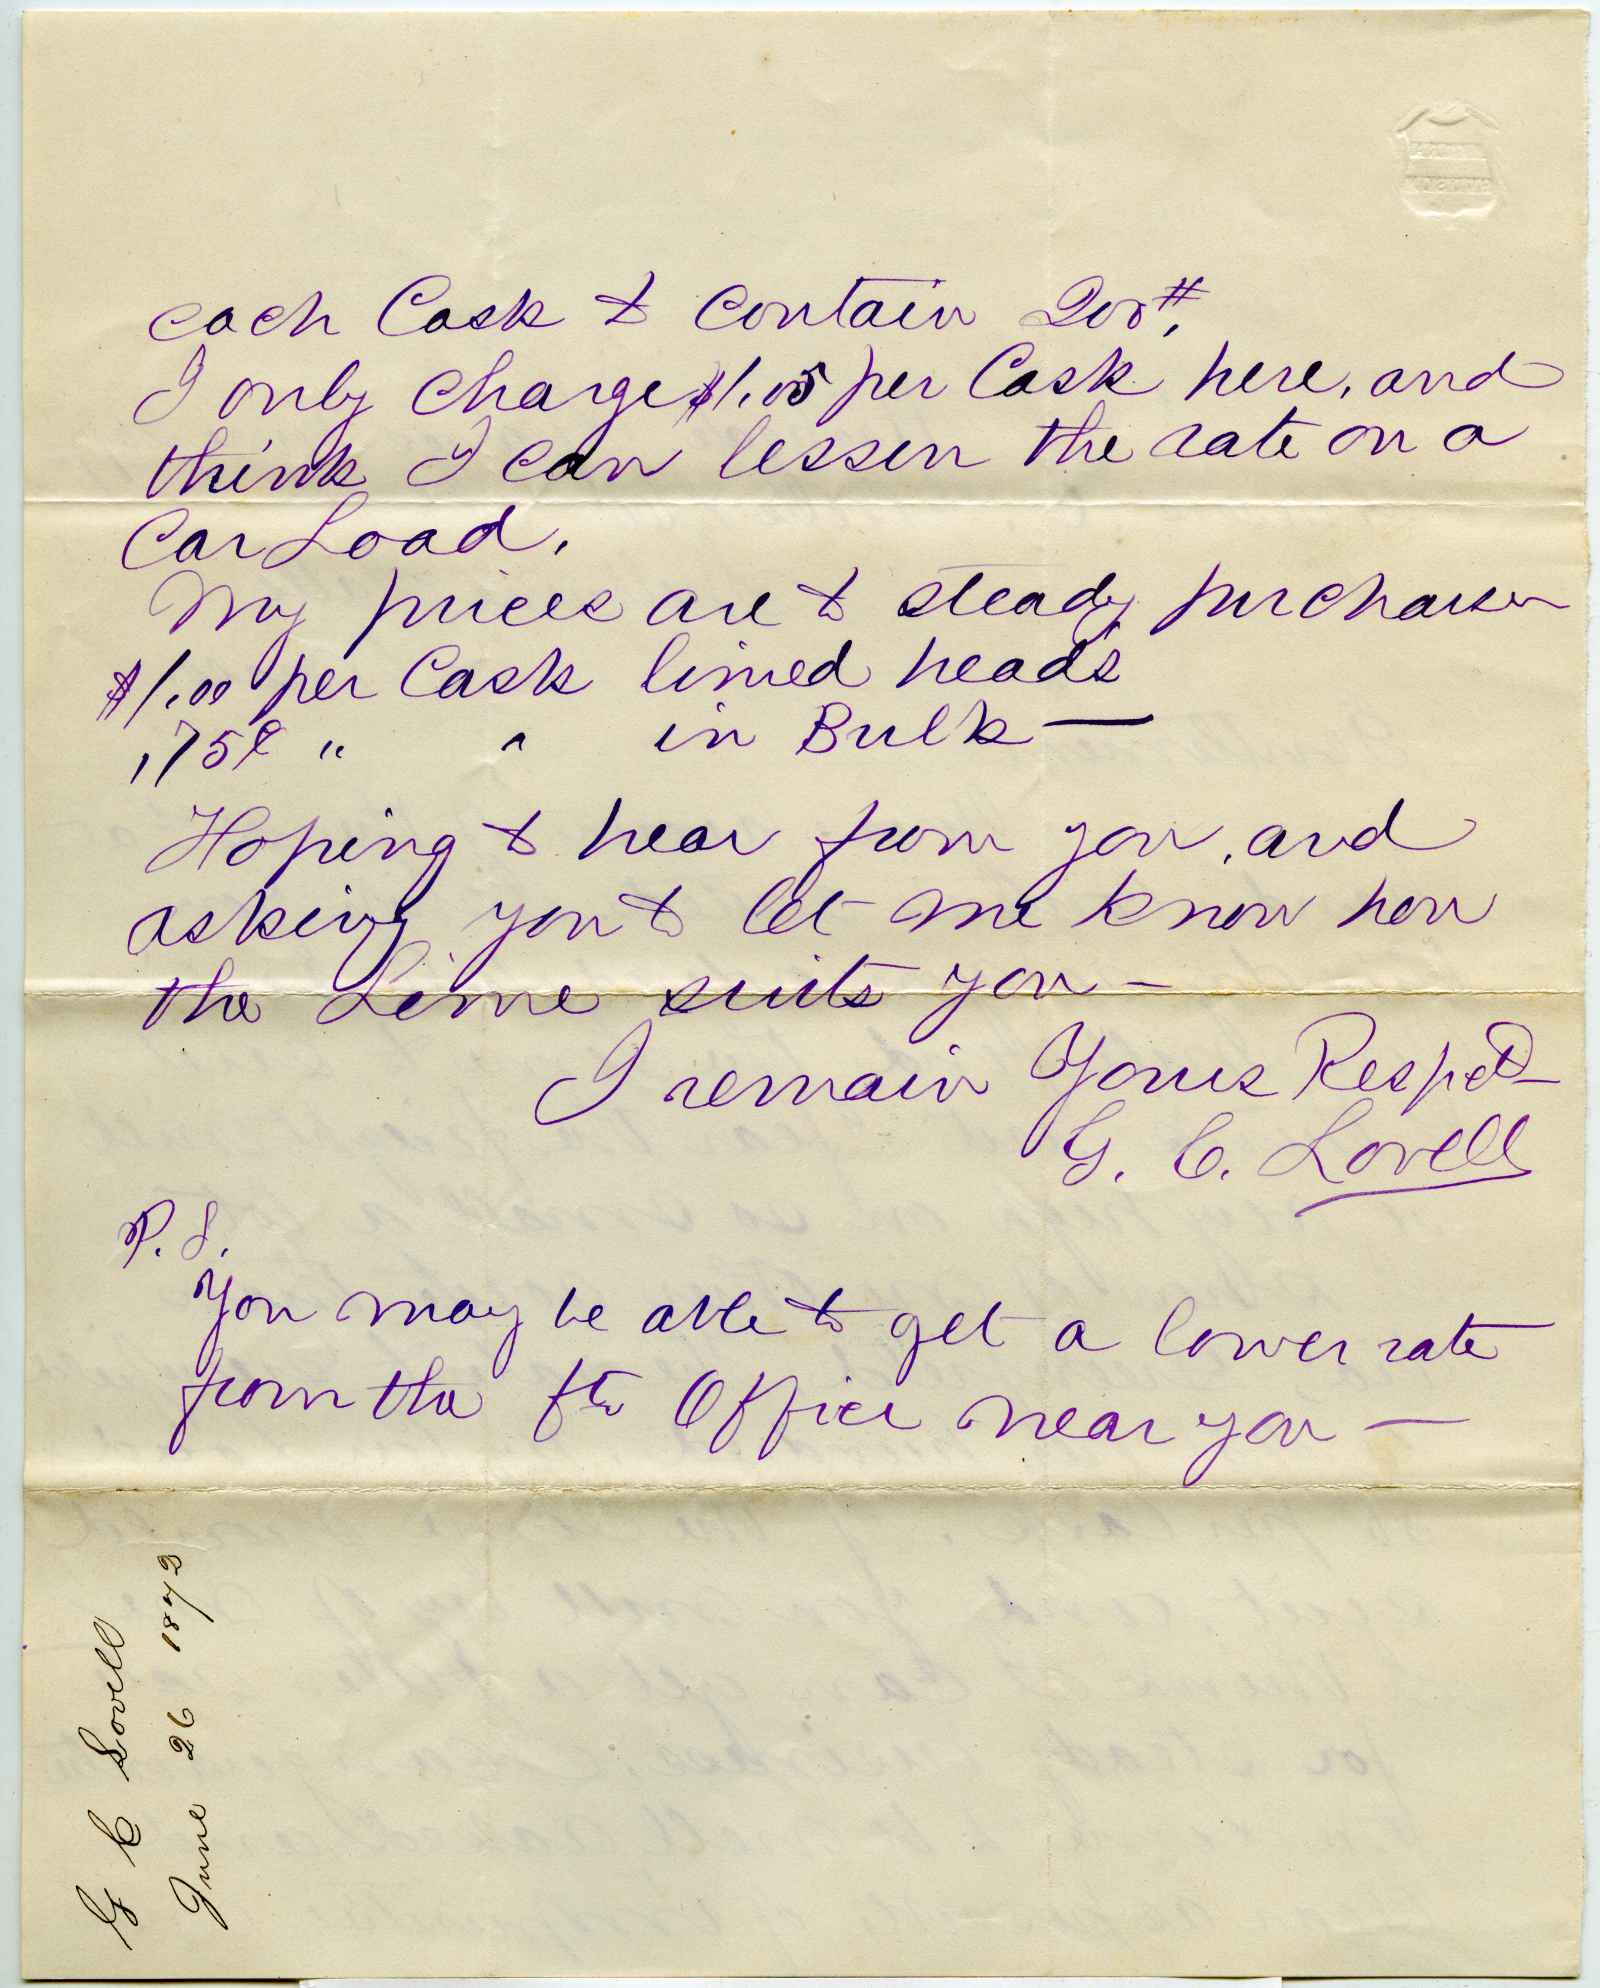 each Cask to contain 200#,
I only charge $1.05 per Cask here, and
think I can lessen the rate on a
Car Load.
My prices are to steady purchaser
$1.00 per Cask lined heads
,75¢ " " in Bulk —
Hoping to hear from you, and
asking you to let me know how
the Lime suits you —
I remain Yours Respct
G. C. Lovell
P. S.
You may be able to get a lower rate
from the frt Office near you —
G C Lovell
June 26 1873